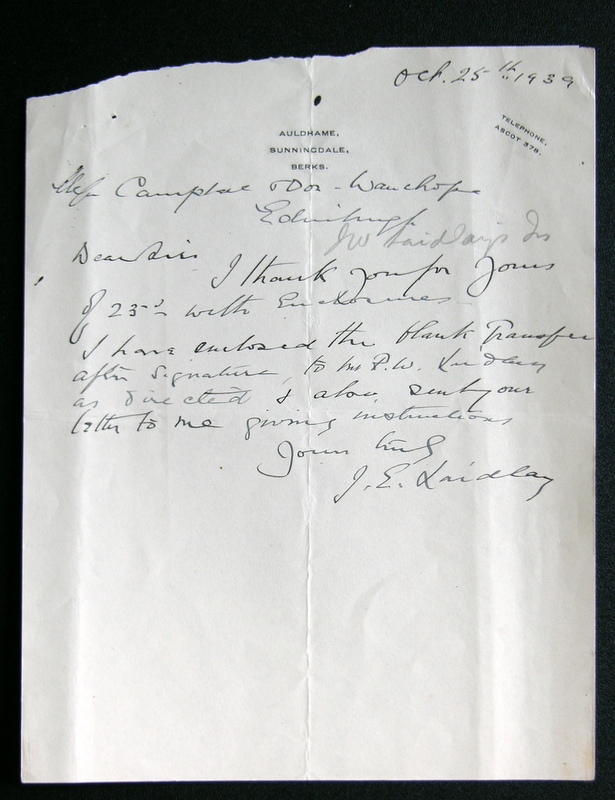 Oct. 25th 1939
TELEPHONE,
ASCOT 378.
AULDHAME,
SUNNINGDALE,
BERKS.
Campbel Don-Wauchope
Edinburgh
J W Laidlay's
Dear Sirs
I thank you for yours
of 23rd with Enclosures
I have enclosed the blank Transfer
after signature, to Mr P.W. Laidlay
as directed & also sent your
letter to me giving instructions
Yours truly
J. E. Laidlay